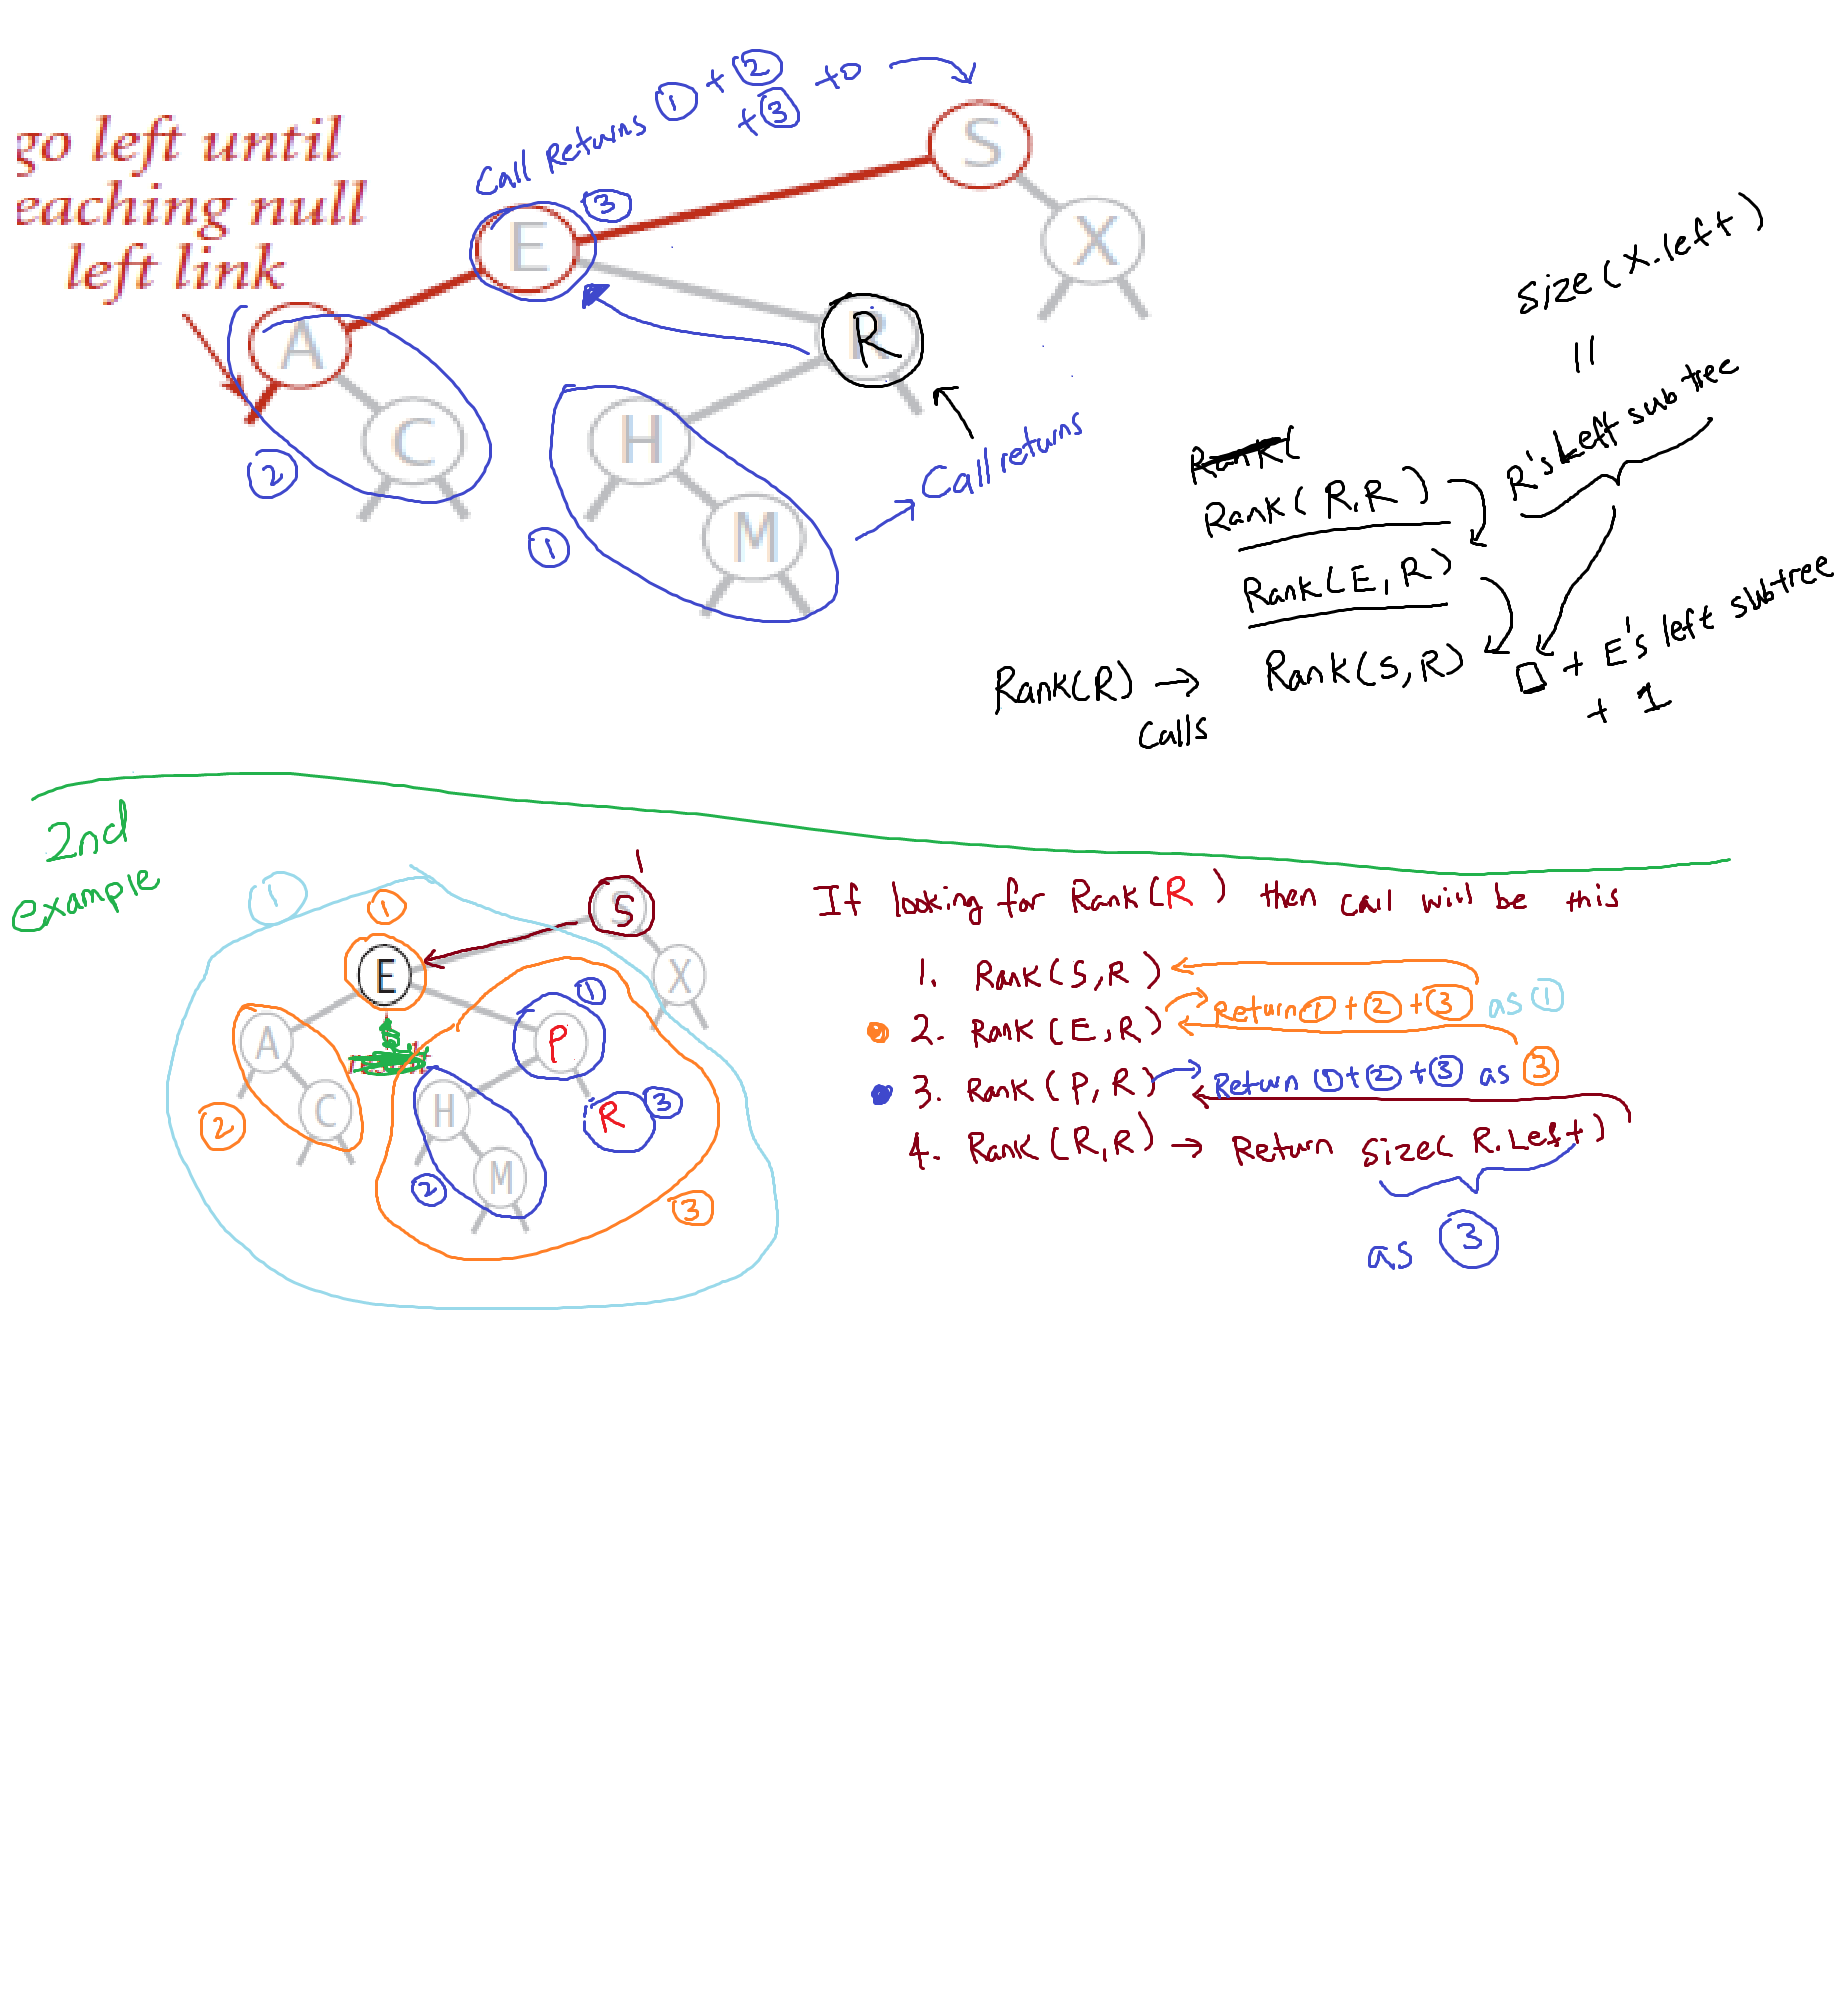 Call Returns ① + ② + ③ to
go left until
eaching null
left link
S
E
③
X
A
R
C
②
H
M
①
Call returns
size(X.left)
||
R's Left subtree
Rank(
Rank(R,R)
Rank(E,R)
Rank(R) → Rank(S,R) □ + E's left subtree
calls + 1
2nd
example
①
①
S
E
X
①
A
P
C
H
R
③
②
M
②
③
If looking for Rank(R) then call will be this
1. Rank(S,R)
2. Rank(E,R) Return ① + ② + ③ as ①
3. Rank(P,R) Return ① + ② + ③ as ③
4. Rank(R,R) → Return size(R.Left)
as ③